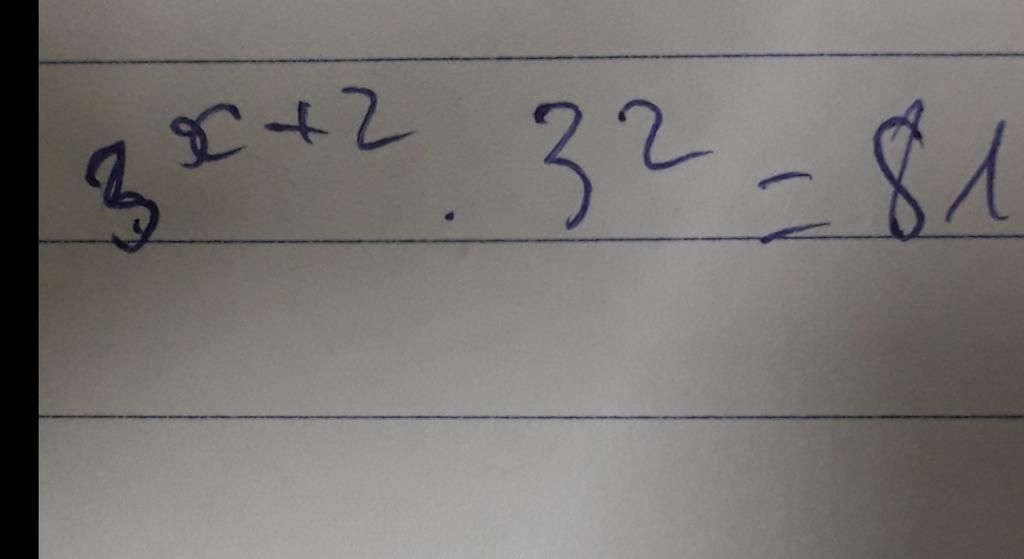 3^{x+2} . 3^2 = 81